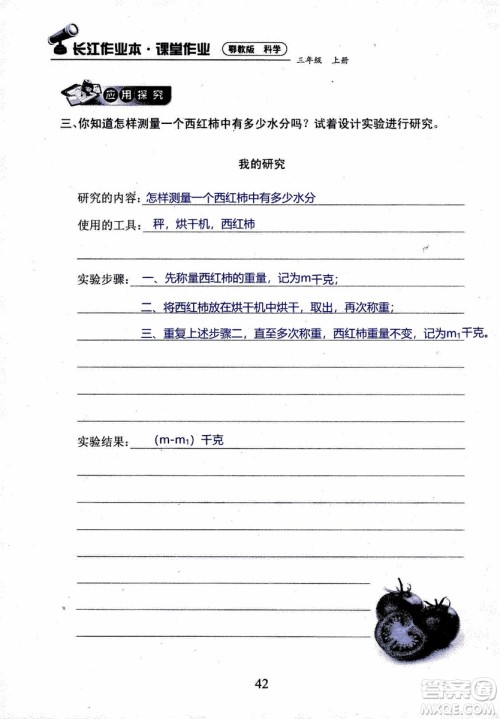 长江作业本·课堂作业 鄂教版 科学
三年级 上册
应用探究
三、你知道怎样测量一个西红柿中有多少水分吗？试着设计实验进行研究。
我的研究
研究的内容：怎样测量一个西红柿中有多少水分
使用的工具：秤，烘干机，西红柿
实验步骤：一、先称量西红柿的重量，记为m千克；
二、将西红柿放在烘干机中烘干，取出，再次称重；
三、重复上述步骤二，直至多次称重，西红柿重量不变，记为m₁千克
实验结果：（m-m₁）千克
42
答案圈
MXQE.COM